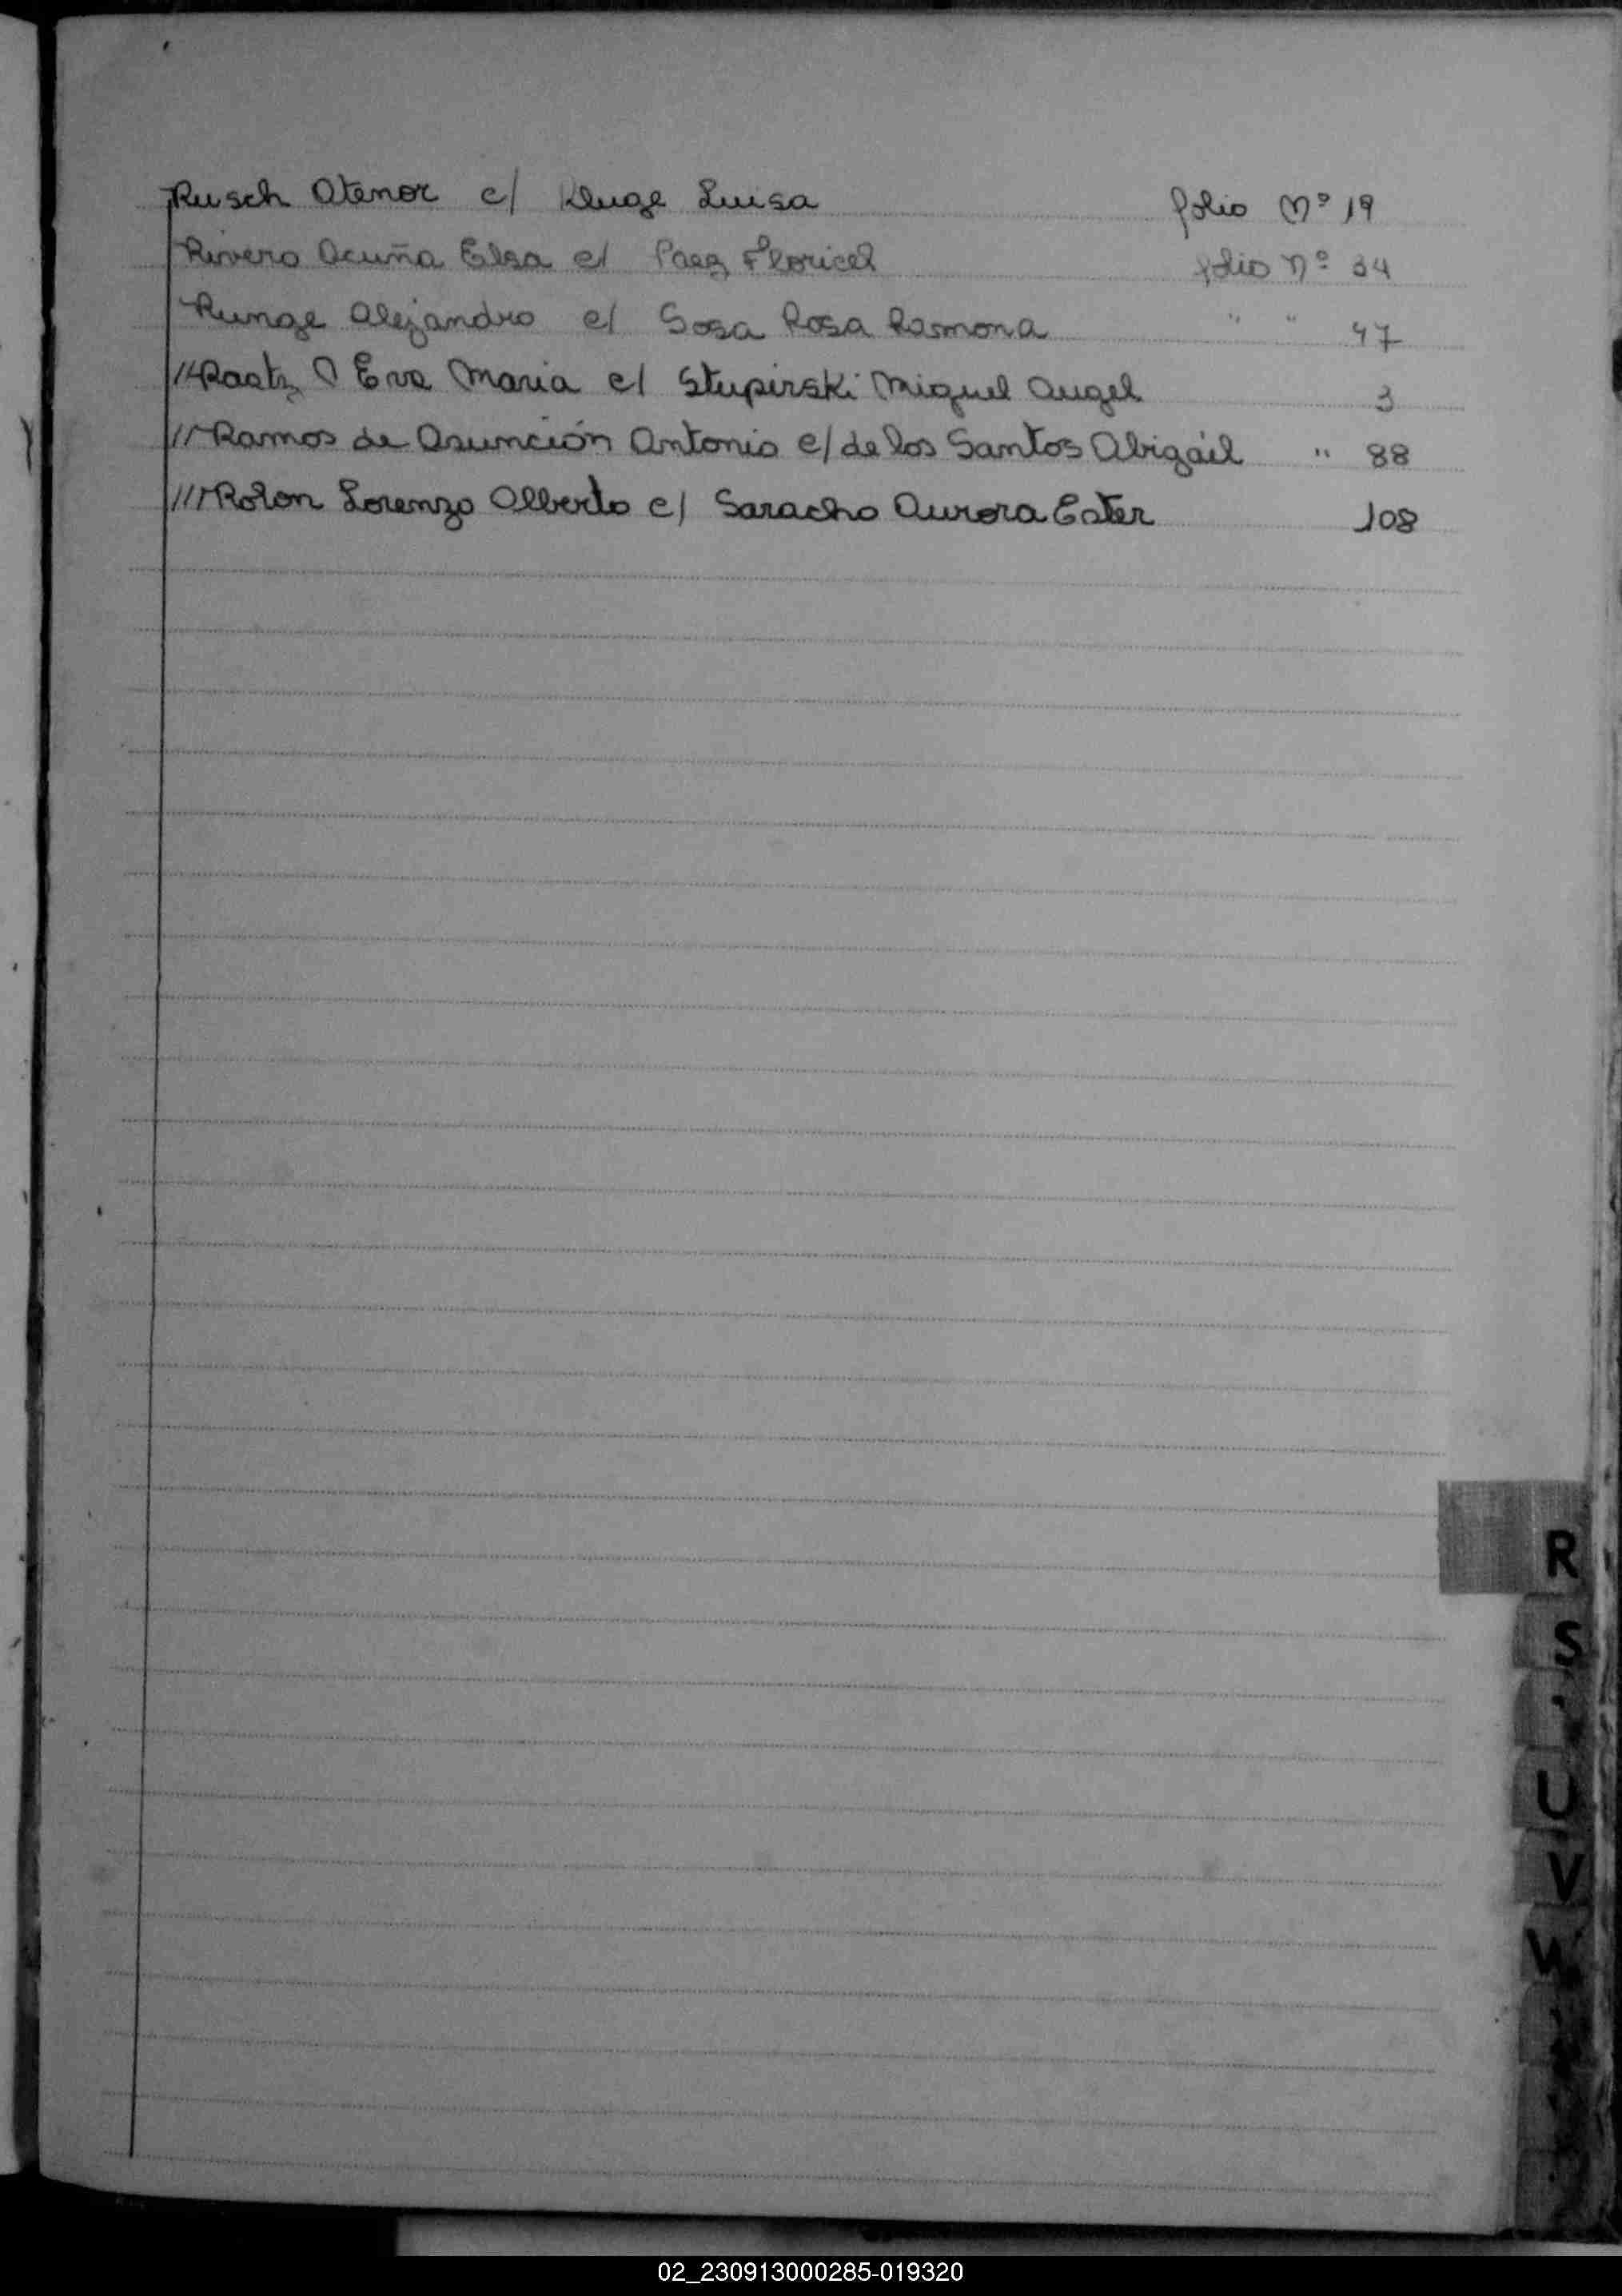 Rusch Atenor c/ Kluge Luisa folio Nº 19
Rivero Acuña Elsa c/ Paez Floricel folio Nº 34
Runge Alejandro c/ Sosa Rosa Ramona " " 47
//Raatz Eva Maria c/ Stupirski Miguel Angel 3
// Ramos de Asunción Antonio c/ de los Santos Abigáil " 88
/// Rolon Lorenzo Alberto c/ Saracho Aurora Ester 108
R
S
U
V
02_230913000285-019320